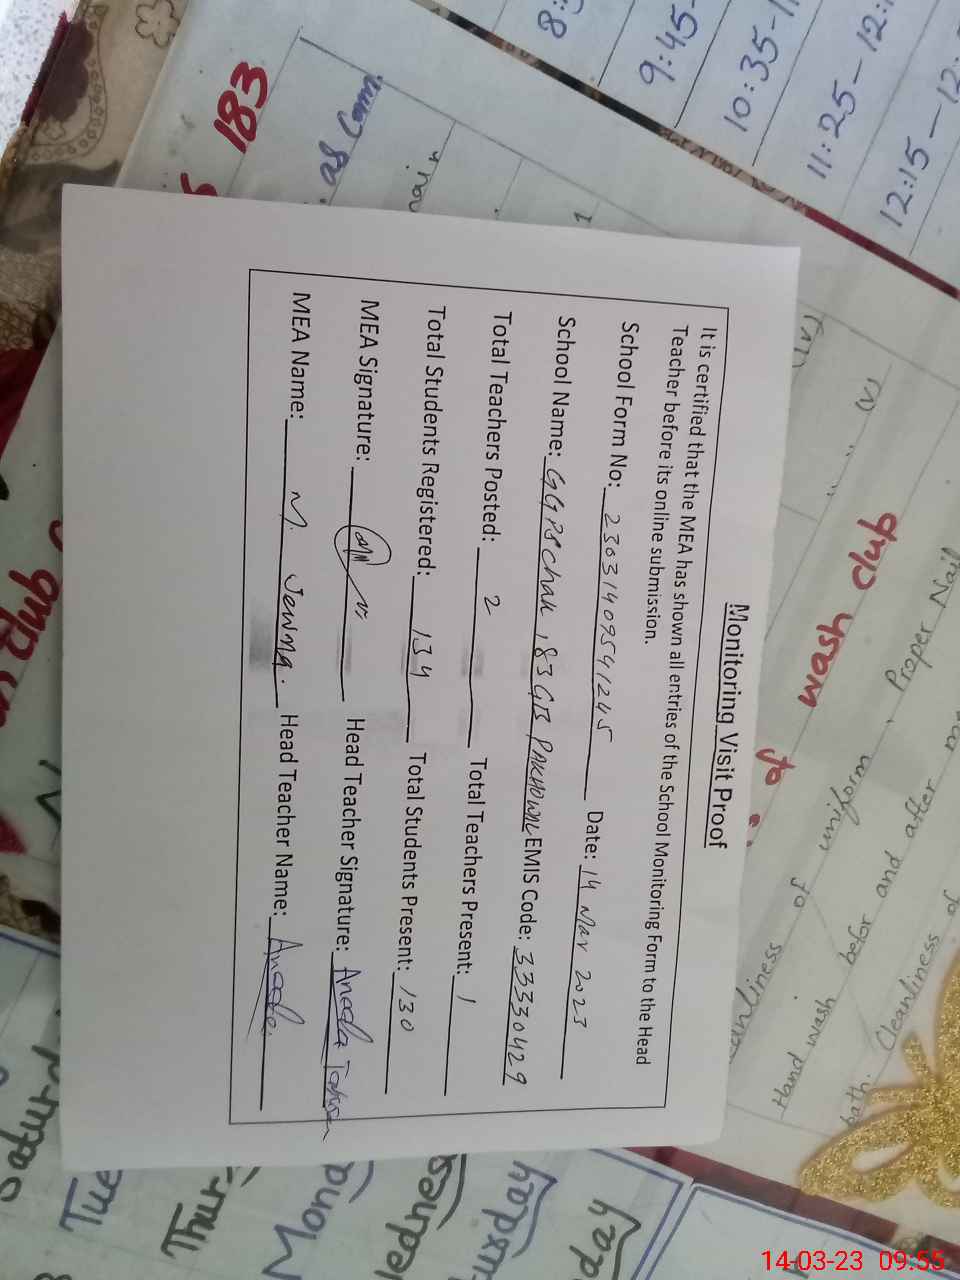 Monitoring Visit Proof
It is certified that the MEA has shown all entries of the School Monitoring Form to the Head
Teacher before its online submission.
School Form No: 23031409541245 Date: 14 Mar 2023
School Name: GGPS Chak 183 GB PAKHOWAL EMIS Code: 33330429
Total Teachers Posted: 2 Total Teachers Present: 1
Total Students Registered: 134 Total Students Present: 130
MEA Signature: Head Teacher Signature:
MEA Name: M. Head Teacher Name:
183
as Com.
8:
9:45-
10:35-1
11:25-12:
12:15-12:
(IV)
" " (V)
wash club
to
of uniform, Proper Nail
Hand wash befor and after
bath. Cleanliness of
club
Tue
Thur
Mond
day
14-03-23 09:55